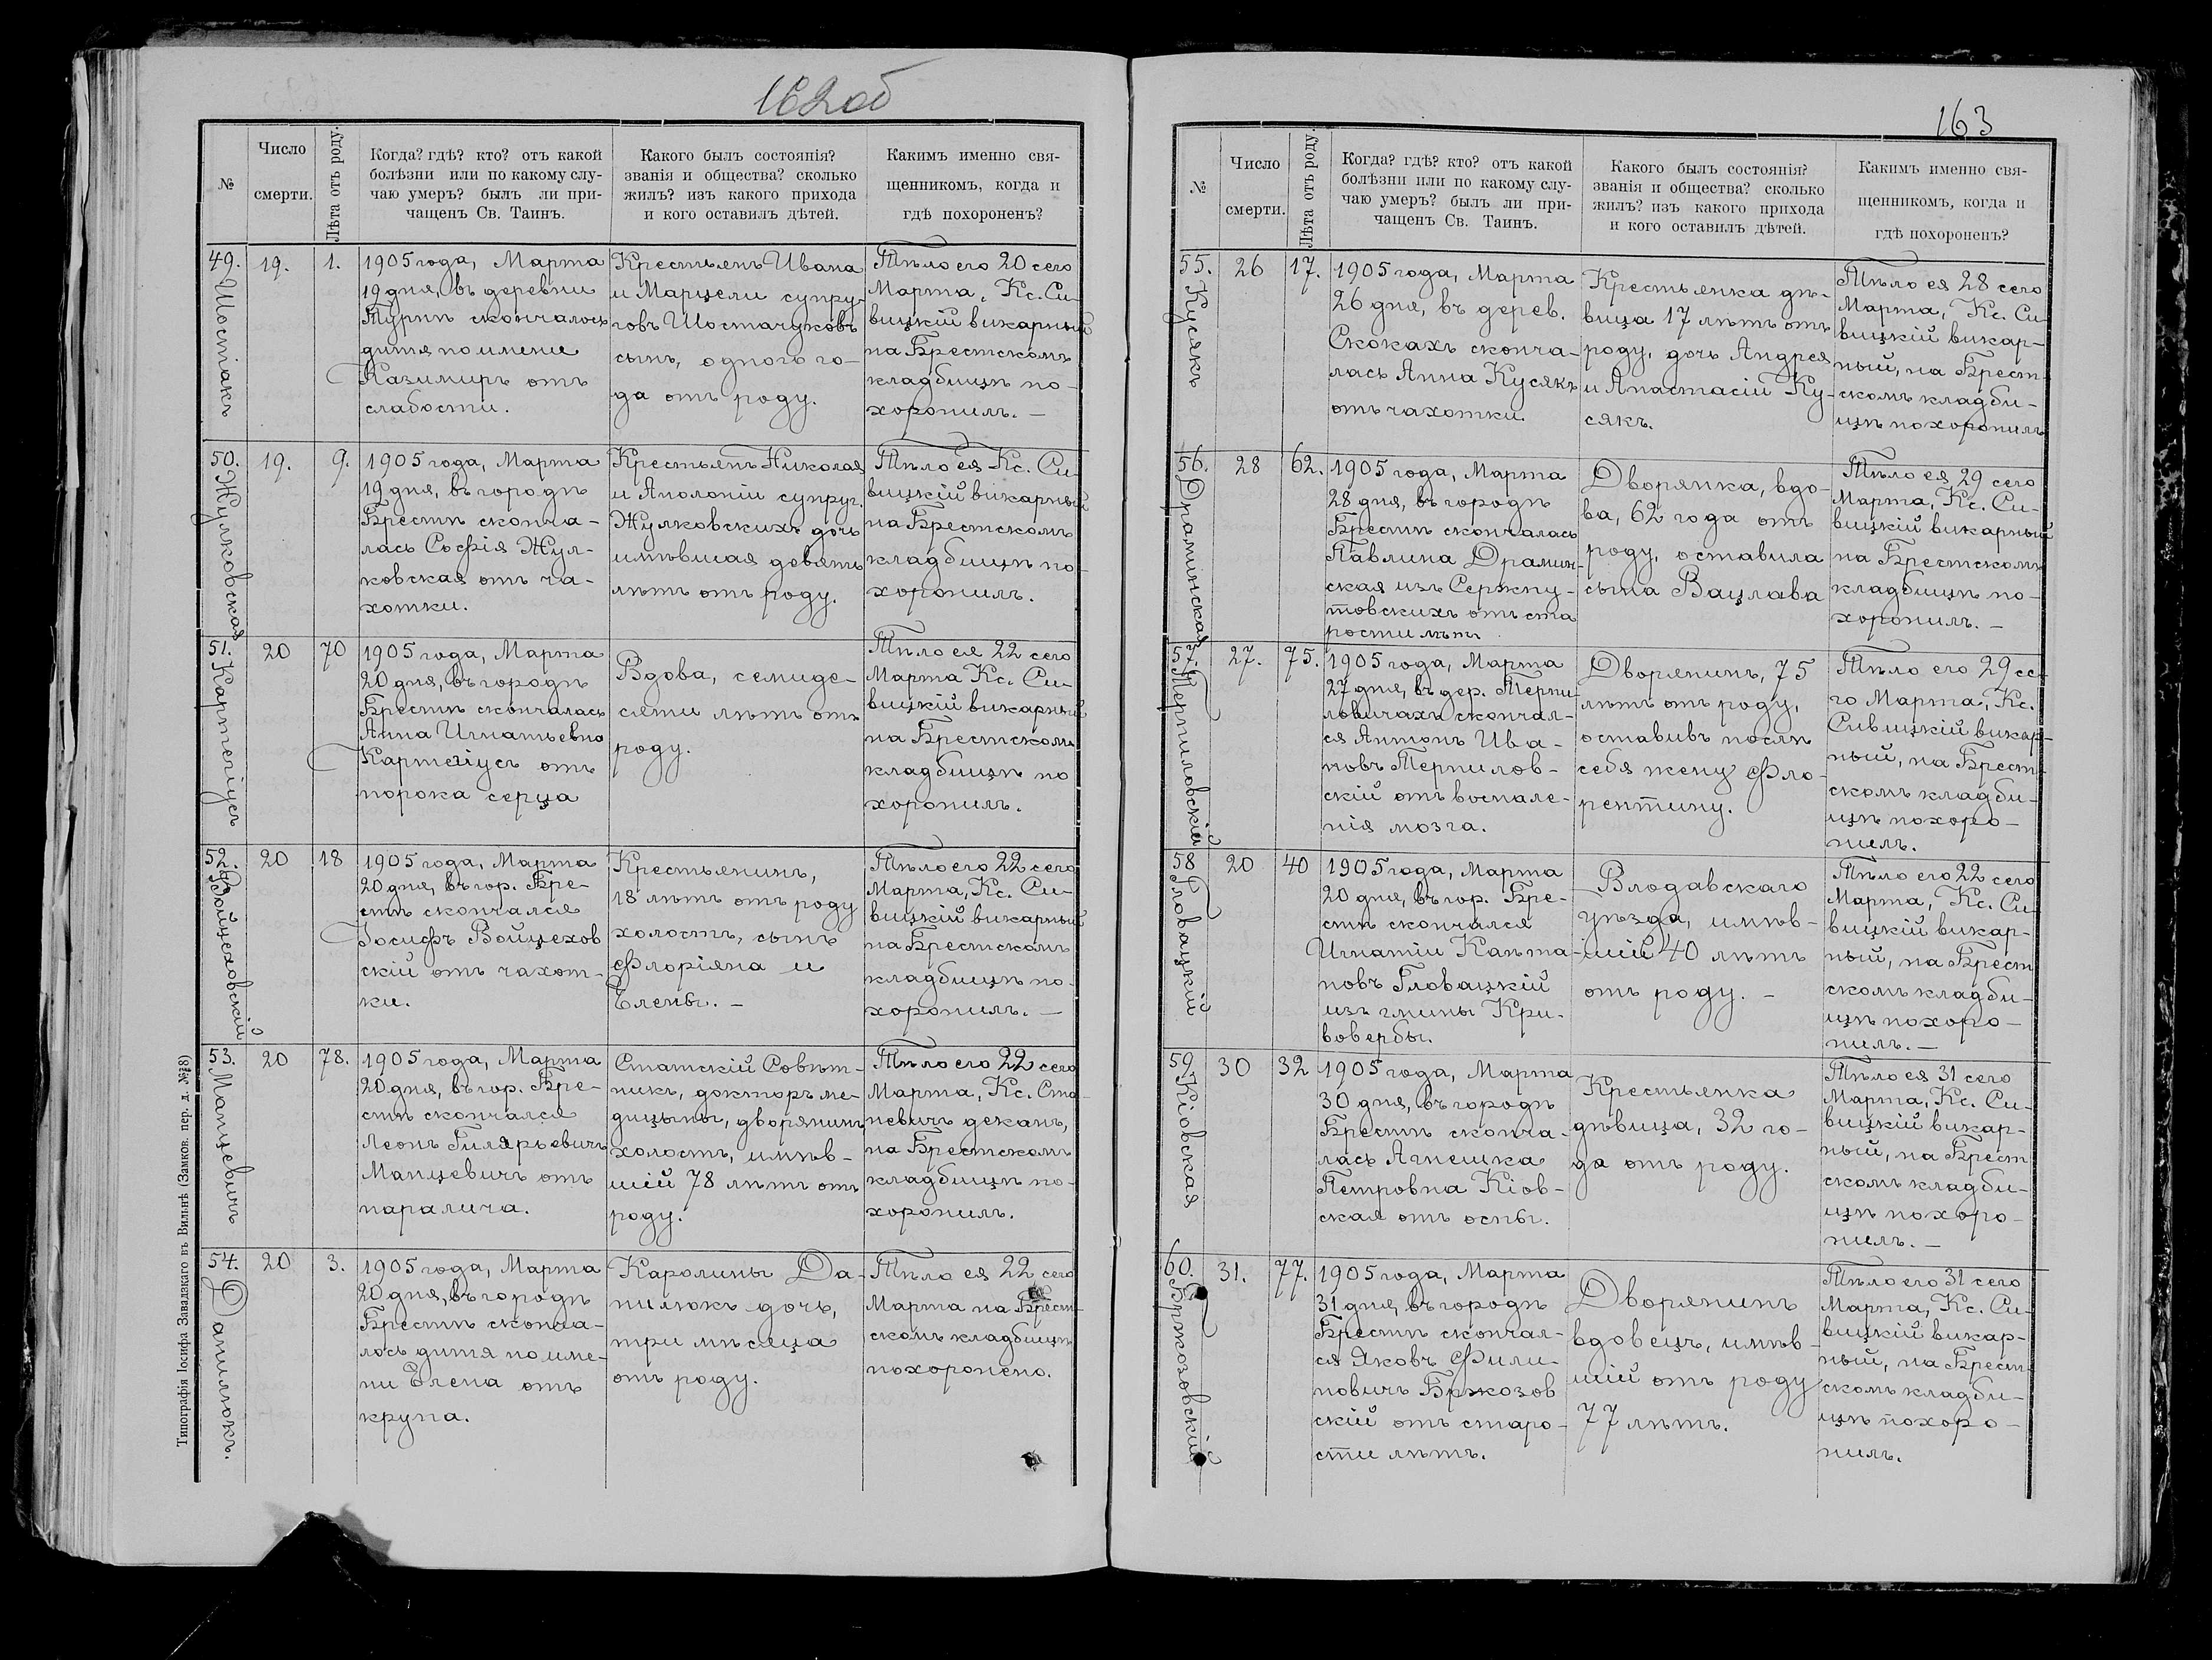 162об
№
Число
смерти.
Лѣта отъ роду.
Когда? гдѣ? кто? отъ какой
болѣзни или по какому слу-
чаю умеръ? былъ ли при-
чащенъ Св. Таинъ.
Какого былъ состоянія?
званія и общества? сколько
жилъ? изъ какого прихода
и кого оставилъ дѣтей.
Какимъ именно свя-
щенникомъ, когда и
гдѣ похороненъ?
49.
Шостакъ
19.
1.
1905 года, Марта
19 дня, въ деревни
Турнѣ скончалось
дитя по имени
Казимиръ отъ
слабости.
Крестьянъ Ивана
и Марцели супру-
говъ Шостачуковъ
сынъ, одного го-
да отъ роду.
Тѣло его 20 сего
Марта, Кс. Си-
вицкій викарный
на Брестскомъ
кладбищѣ по-
хоронилъ. —
50.
Жулковская
19.
9.
1905 года, Марта
19 дня, въ городѣ
Брестѣ сконча-
лась Софія Жул-
ковская отъ ча-
хотки.
Крестьянъ Николая
и Аполоніи супруг.
Жулковскихъ дочь
имѣвшая девять
лѣтъ отъ роду.
Тѣло ея Кс. Си-
вицкій викарный
на Брестскомъ
кладбищѣ по-
хоронилъ.
51.
Картегіусъ
20
70
1905 года, Марта
20 дня, въ городѣ
Брестѣ скончалась
Анна Игнатьевна
отъ
порока серца
Вдова, семиде-
сяти лѣтъ отъ
роду.
Тѣло ея 22 сего
Марта Кс. Си-
вицкій викарный
на Брестскомъ
кладбищѣ по
хоронилъ.
52.
Войцеховскій
20
18
1905 года, Марта
20 дня, въ гор. Бре-
стѣ скончался
Іосифъ Войцехов
скій отъ чахот-
ки.
Крестьянинъ,
18 лѣтъ отъ роду
холостъ, сынъ
Флоріяна и
Елены. —
Тѣло его 22 сего
Марта, Кс. Си-
вицкій викарный
на Брестскомъ
кладбищѣ по-
хоронилъ. —
53.
Манцевичъ
20
78.
1905 года, Марта
20 дня, въ гор. Бре-
стѣ скончался
Леонъ Гилярьевичъ
Манцевичъ отъ
паралича.
Статскій Совѣт-
никъ, докторъ ме-
дицыны, дворянинъ
холостъ, имѣв-
шій 78 лѣтъ отъ
роду.
Тѣло его 22 сего
Марта, Кс. Ста-
невичъ деканъ,
на Брестскомъ
кладбищѣ по-
хоронилъ.
54.
Данилюкъ.
20
3.
1905 года, Марта
20 дня, въ городѣ
Брестѣ сконча-
лось дитя по име-
ни Елена отъ
крупа.
Каролины Да-
нилюкъ дочь,
три мѣсяца
отъ роду.
Тѣло ея 22 сего
Марта на Брест-
скомъ кладбищѣ
похоронено.
Типографія Іосифа Завадзкаго въ Вильнѣ (Замков. пер. д. № 8)
163
№
Число
смерти.
Лѣта отъ роду.
Когда? гдѣ? кто? отъ какой
болѣзни или по какому слу-
чаю умеръ? былъ ли при-
чащенъ Св. Таинъ.
Какого былъ состоянія?
званія и общества? сколько
жилъ? изъ какого прихода
и кого оставилъ дѣтей.
Какимъ именно свя-
щенникомъ, когда и
гдѣ похороненъ?
55.
Кусякъ
26
17.
1905 года, Марта
26 дня, въ дерев.
Скокахъ сконча-
лась Анна Кусякъ
отъ чахотки.
Крестьянка дѣ-
вица 17 лѣтъ отъ
роду, дочь Андрея
и Анастасіи Ку-
сякъ.
Тѣло ея 28 сего
Марта, Кс. Си
вицкій викар-
ный, на Брест-
скомъ кладби-
щѣ похоронилъ
56.
Драминская
28
62.
1905 года, Марта
28 дня, въ городѣ
Брестѣ скончалась
Павлина Драмин-
ская изъ Сержпу-
товскихъ отъ ста
рости лѣтъ
Дворянка, вдо-
ва, 62 года отъ
роду, оставила
сына Вацлава
Тѣло ея 29 сего
Марта, Кс. Си-
вицкій викарный
на Брестскомъ
кладбищѣ по-
хоронилъ. —
57.
Терпиловскій
27.
75.
1905 года, Марта
27 дня, въ дер. Терпи-
ловичахъ скончал-
ся Антонъ Ива-
новъ Терпилов-
скій отъ воспале-
нія мозга.
Дворянинъ, 75
лѣтъ отъ роду,
оставивъ послѣ
себя жену Фло-
рентину.
Тѣло его 29 се-
го Марта, Кс.
Сивицкій викар-
ный, на Брест-
скомъ кладби-
щѣ похоро-
нилъ.
58
Гловацкій
20
40
1905 года, Марта
20 дня, въ гор. Бре-
стѣ скончался
Игнатіи Каэта-
новъ Гловацкій
изъ гмины Кри-
вовербы.
Влодавскаго
уѣзда, имѣв-
шій 40 лѣтъ
отъ роду. —
Тѣло его 22 сего
Марта, Кс. Си
вицкій викар-
ный, на Брест
скомъ кладби-
щѣ похоро-
нилъ. —
59
Кіовская
30
32
1905 года, Марта
30 дня, въ городѣ
Брестѣ сконча-
лась Агнешка
Петровна Кіов-
ская отъ оспы.
Крестьянка
дѣвица, 32 го-
да отъ роду.
Тѣло ея 31 сего
Марта, Кс. Си-
вицкій викар-
ный, на Брест
скомъ кладби-
щѣ похоро-
нилъ. —
60.
Бржозовскій
31.
77.
1905 года, Марта
31 дня, въ городѣ
Брестѣ скончал-
ся Яковъ Фили-
повичъ Бржозов
скій отъ старо-
сти лѣтъ.
Дворянинъ
вдовецъ, имѣв
шій отъ роду
77 лѣтъ.
Тѣло его 31 сего
Марта, Кс. Си-
вицкій викар-
ный, на Брест-
скомъ кладби-
щѣ похоро-
нилъ.